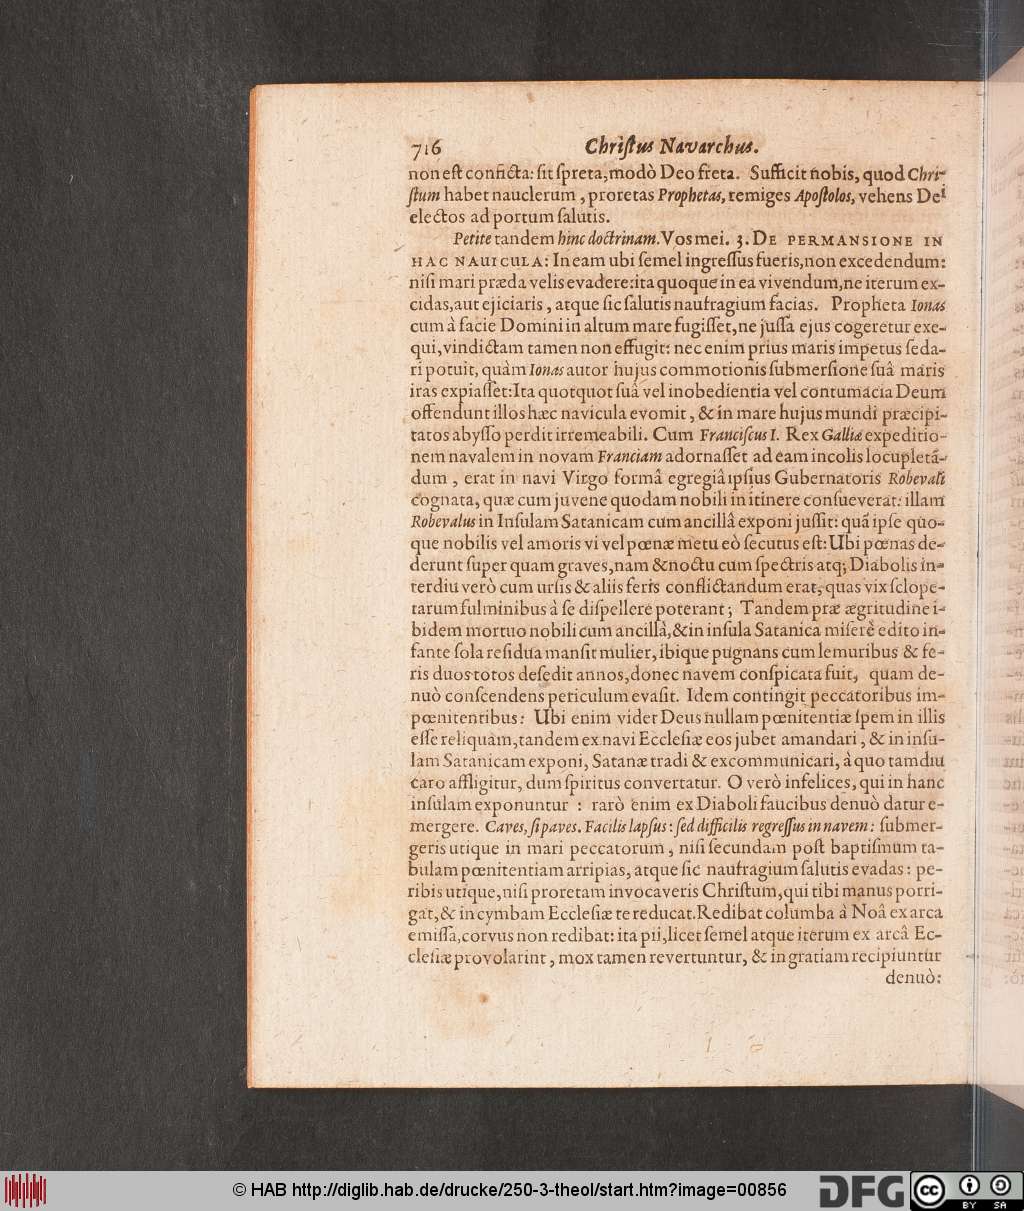 716 Christus Navarchus.
non est conficta: sit spreta, modò Deo freta. Sufficit nobis, quod Chri-
stum habet nauclerum, proretas Prophetas, remiges Apostolos, vehens Dei
electos ad portum salutis.
Petite tandem hinc doctrinam. Vos mei. 3. DE PERMANSIONE IN
HAC NAVICULA: In eam ubi semel ingressus fueris, non excedendum:
nisi mari præda velis evadere: ita quoque in ea vivendum, ne iterum ex-
cidas, aut ejiciaris, atque sic salutis naufragium facias. Propheta Ionas
cum à facie Domini in altum mare fugisset, ne jussa ejus cogeretur exe-
qui, vindictam tamen non effugit: nec enim prius maris impetus seda-
ri potuit, quàm Ionas autor hujus commotionis submersione suâ maris
iras expiasset: Ita quotquot suâ vel inobedientia vel contumacia Deum
offendunt illos hæc navicula evomit, & in mare hujus mundi præcipi-
tatos abysso perdit irremeabili. Cum Franciscus I. Rex Galliæ expeditio-
nem navalem in novam Franciam adornasset ad eam incolis locupletā-
dum, erat in navi Virgo formâ egregiâ ipsius Gubernatoris Robevali
cognata, quæ cum juvene quodam nobili in itinere consueverat: illam
Robevalus in Insulam Satanicam cum ancillâ exponi jussit: quā ipse quo-
que nobilis vel amoris vi vel pœnæ metu eò secutus est: Ubi pœnas de-
derunt super quam graves, nam & noctu cum spectris atq; Diabolis in-
terdiu verò cum ursis & aliis feris conflictandum erat, quas vix sclope-
tarum fulminibus à se dispellere poterant; Tandem præ ægritudine i-
bidem mortuo nobili cum ancillâ, & in insula Satanica miserè edito in-
fante sola residua mansit mulier, ibique pugnans cum lemuribus & fe-
ris duos totos desedit annos, donec navem conspicata fuit, quam de-
nuò conscendens periculum evasit. Idem contingit peccatoribus im-
pœnitentibus: Ubi enim videt Deus nullam pœnitentiæ spem in illis
esse reliquam, tandem ex navi Ecclesiæ eos jubet amandari, & in insu-
lam Satanicam exponi, Satanæ tradi & excommunicari, à quo tamdiu
caro affligitur, dum spiritus convertatur. O verò infelices, qui in hanc
insulam exponuntur: rarò enim ex Diaboli faucibus denuò datur e-
mergere. Caves, si paves. Facilis lapsus: sed difficilis regressus in navem: submer-
geris utique in mari peccatorum, nisi secundam post baptismum ta-
bulam pœnitentiam arripias, atque sic naufragium salutis evadas: pe-
ribis utique, nisi proretam invocaveris Christum, qui tibi manus porri-
gat, & in cymbam Ecclesiæ te reducat. Redibat columba à Noâ ex arca
emissa, corvus non redibat: ita pii, licet semel atque iterum ex arcâ Ec-
clesiæ provolarint, mox tamen revertuntur, & in gratiam recipiuntur
denuò:
© HAB http://diglib.hab.de/drucke/250-3-theol/start.htm?image=00856
DFG
cc BY SA